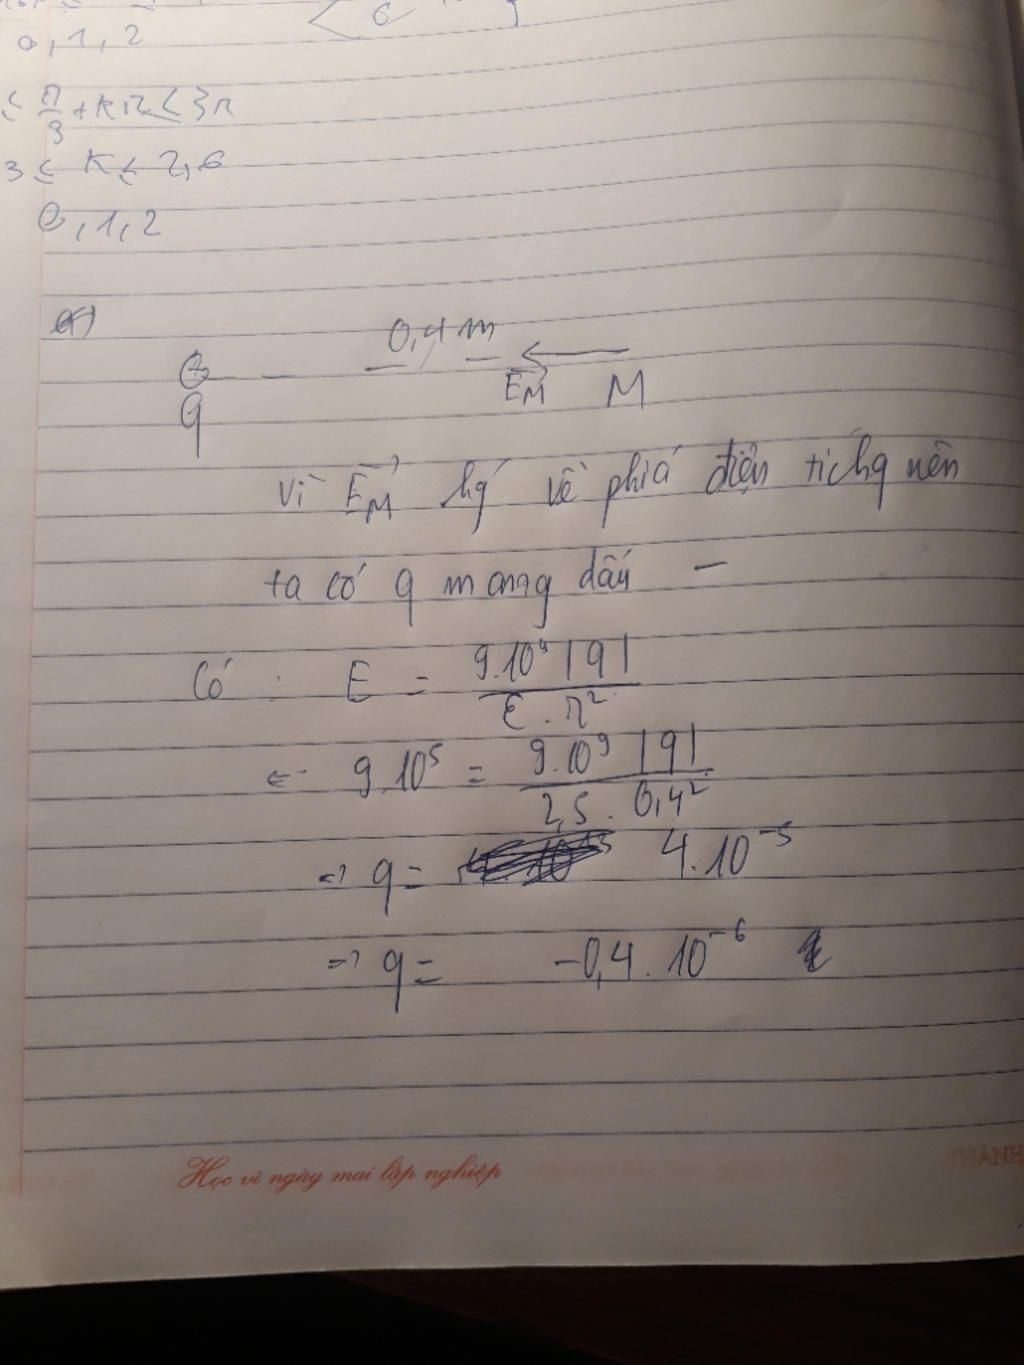 0,1,2
≤ π/3 + kπ ≤ 3π
3 ≤ k ≤ 2,6
0,1,2
a)
0,4m
q
E⃗M M
Vì E⃗M hǵ về phiá điện tích q nên
ta có q mang dấu −
Có : E = 9.10⁹|q| / ε.r²
⇔ 9.10⁵ = 9.10⁹|q| / 2,5.0,4²
⇒ q = 4.10⁻⁵
⇒ q = −0,4.10⁻⁶
Học vì ngày mai lập nghiệp
THÀNH